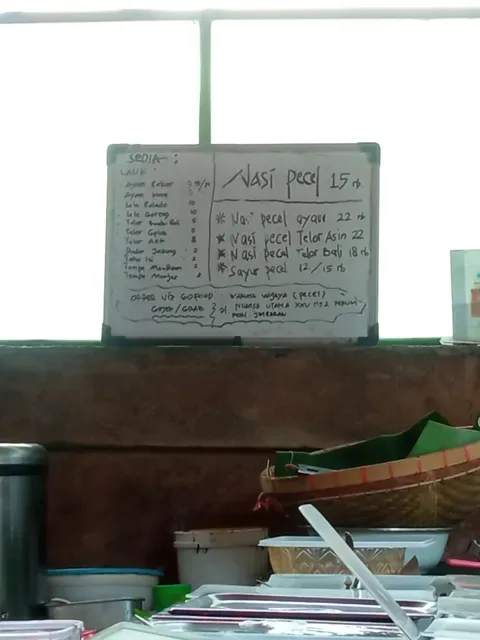 SEDIA :
LAUK :
Ayam Bakar
Ayam
Lele Balado 10
Lele Goreng 10
Telor Bumbu Bali 5
Telor 5
Telor Asin 8
Dadar Jagung 2
Tahu Isi 2
Tempe Mendoan 2
Tempe 2
Nasi pecel 15 rb
* Nasi pecel ayam 22 rb
* Nasi pecel Telor Asin 22
* Nasi pecel Telor bali 18 rb
* Sayur pecel 12/15 rb
ORDER VIA GOFOOD
GOJEK/GRAB } di
WARUNG WIJAYA (pecel)
UTAMA XXV
JIMBARAN